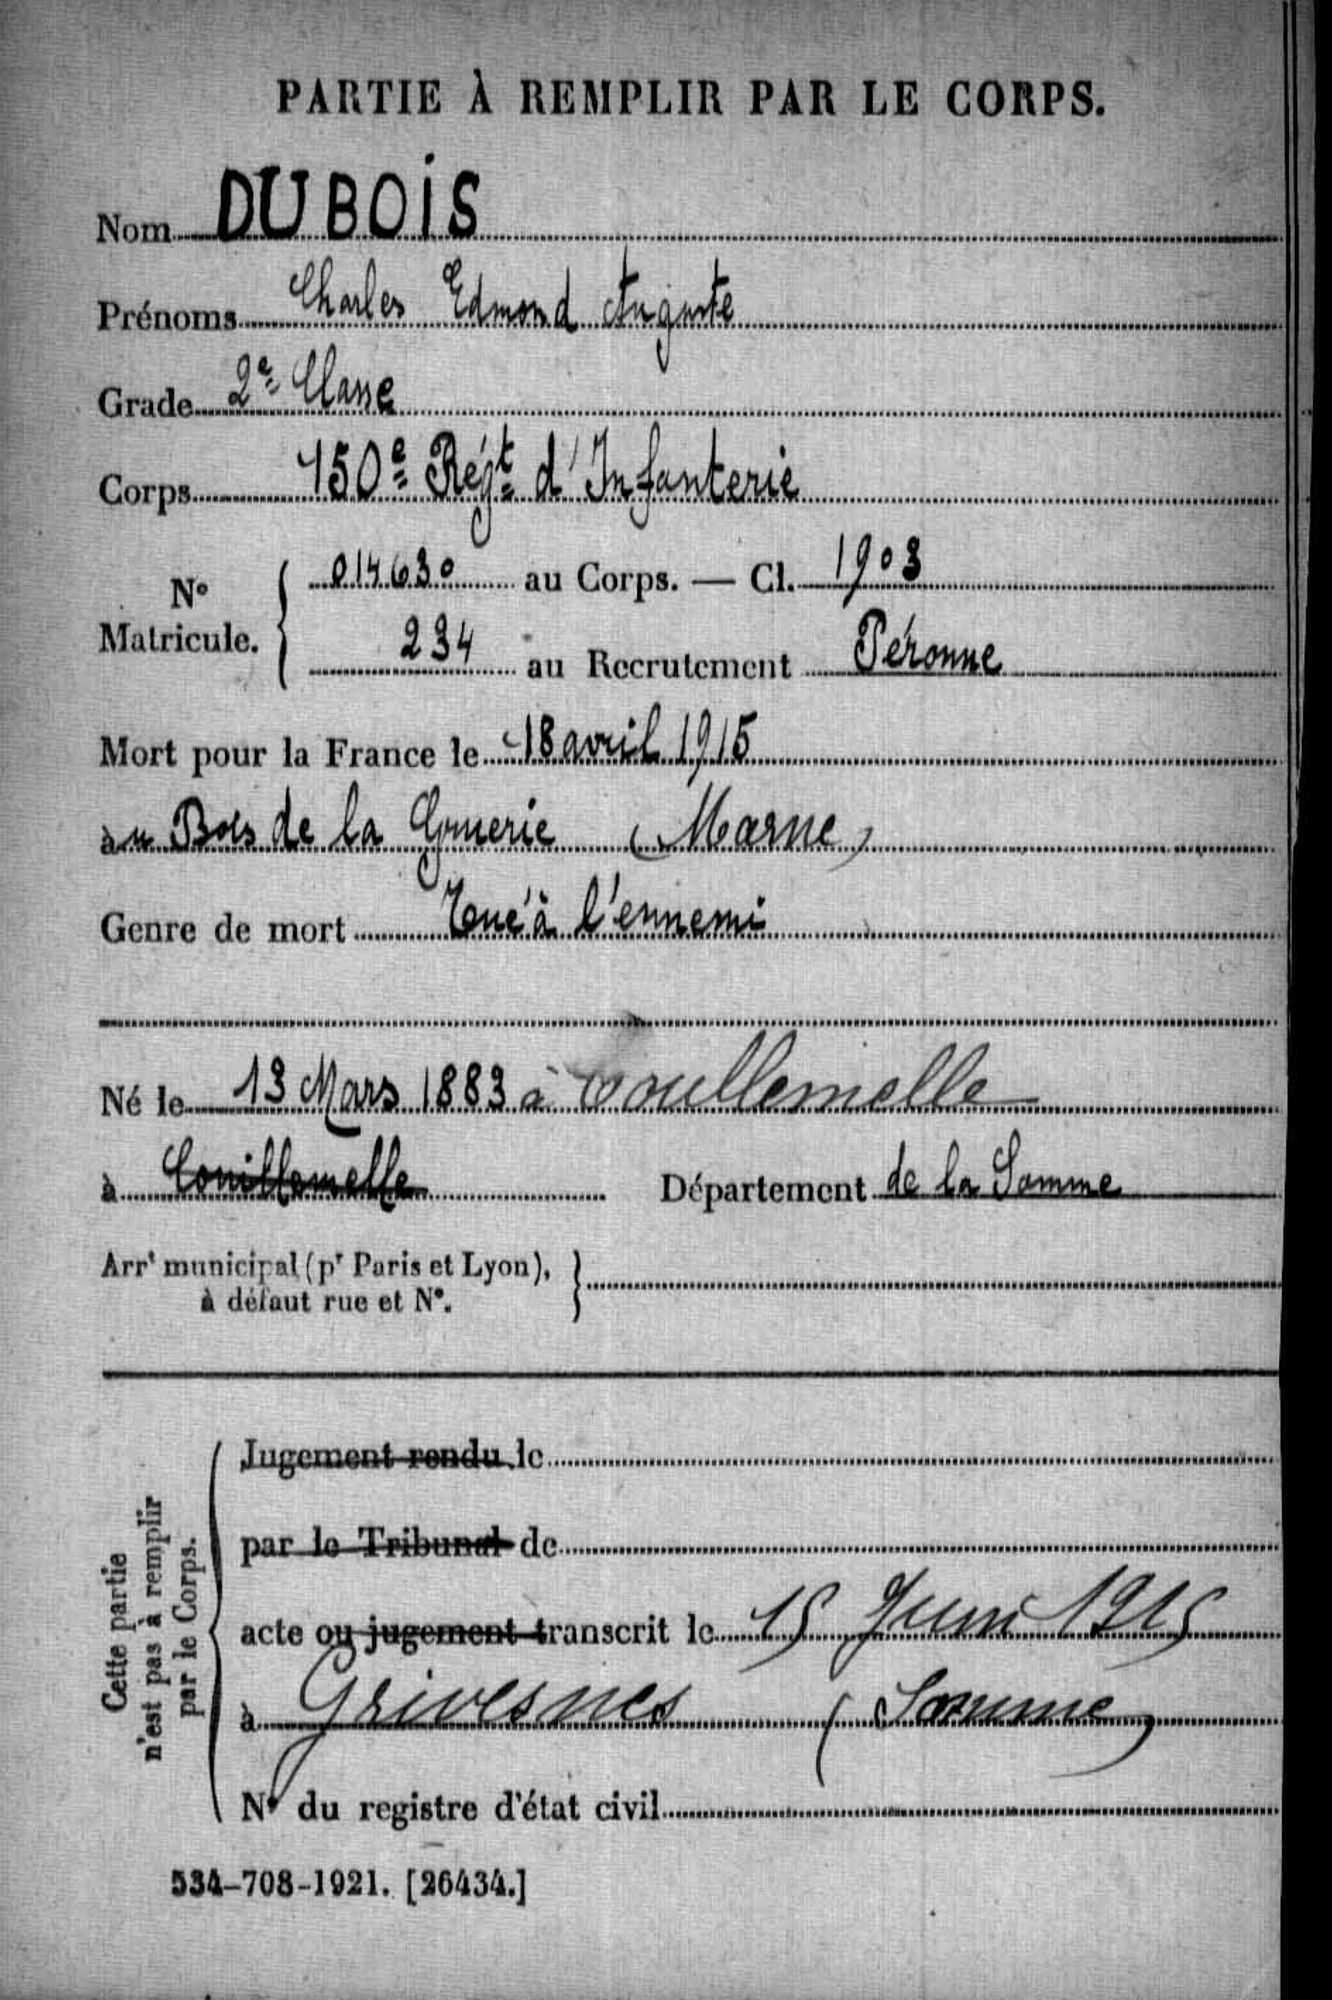 PARTIE À REMPLIR PAR LE CORPS.
Nom DUBOIS
Prénoms Charles Edmond Auguste
Grade 2e Classe
Corps 150e Régt d'Infanterie
No Matricule. 014630 au Corps. — Cl. 1903
234 au Recrutement Péronne
Mort pour la France le 18 avril 1915
au Bois de la Gruerie (Marne)
Genre de mort Tué à l'ennemi
Né le 13 Mars 1883 à Coullemelle
à Couillemelle Département de la Somme
Arrt municipal (pr Paris et Lyon),
à défaut rue et No.
Cette partie
n'est pas à remplir
par le Corps.
Jugement rendu le
par le Tribunal de
acte ou jugement transcrit le 15 Juin 1915
à Grivesnes (Somme)
No du registre d'état civil
534-708-1921. [26434.]